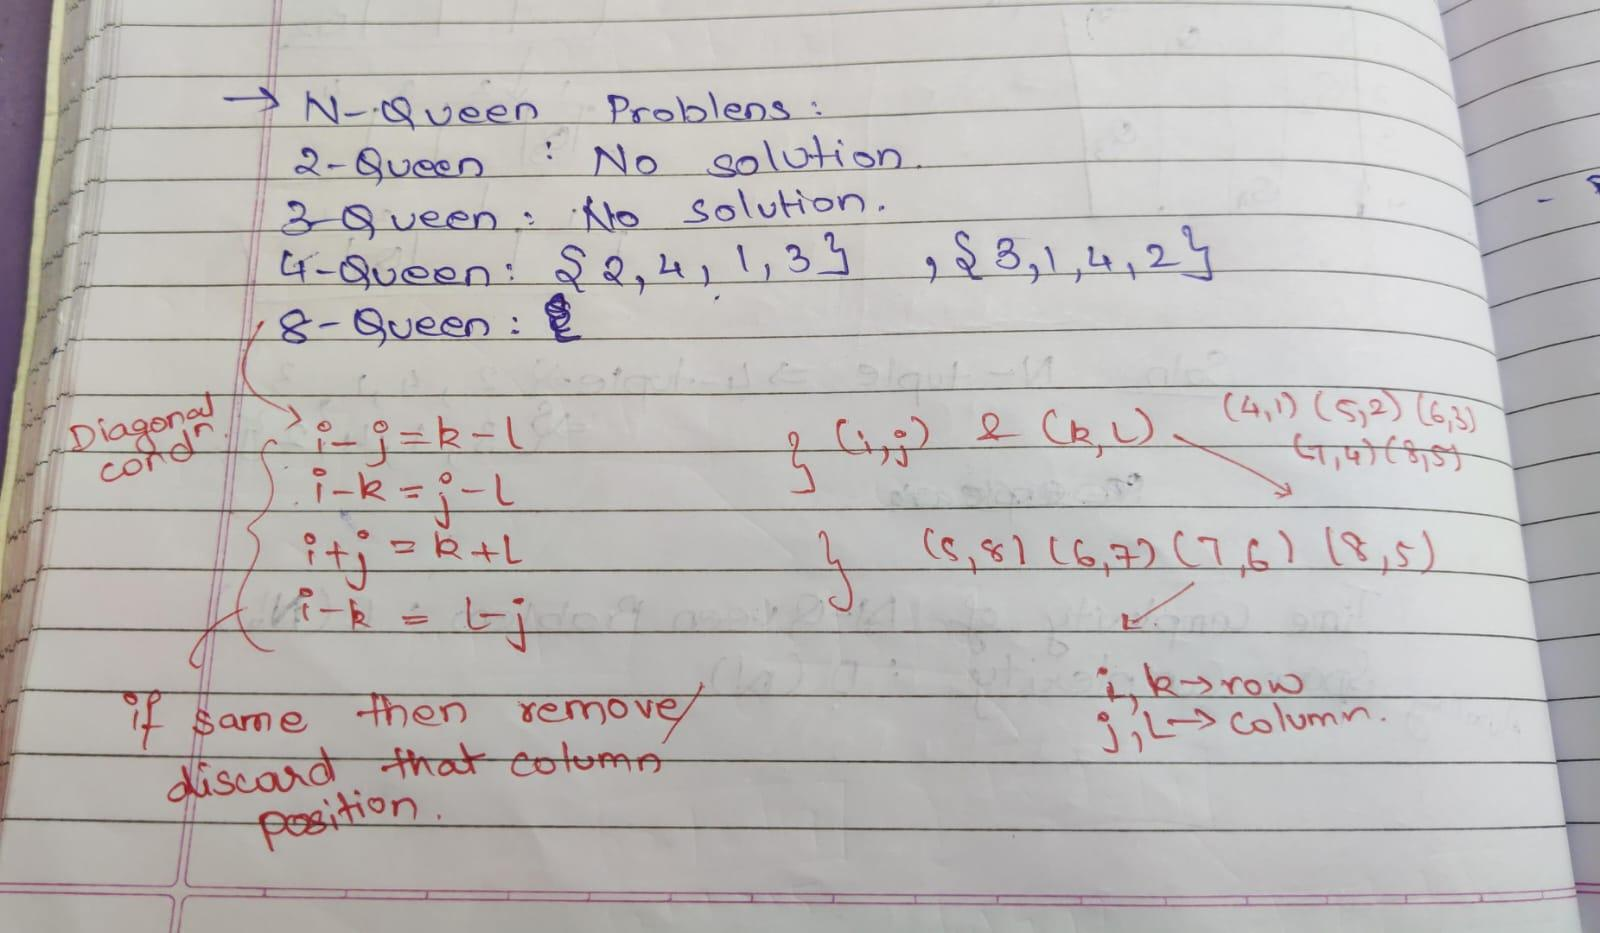 → N-Queen Problens:
2-Queen : No solution.
3-Queen: No solution.
4-Queen: {2,4,1,3} , {3,1,4,2}
8-Queen:
Diagonal condn.
i-j=k-l } (i,j) & (k,L) (4,1) (5,2) (6,3)
(7,4) (8,5)
i-k=j-l
i+j=k+L } (5,8) (6,7) (7,6) (8,5)
i-k = L-j
i,k→row
j,L→column.
if same then remove/
discard that column
position.